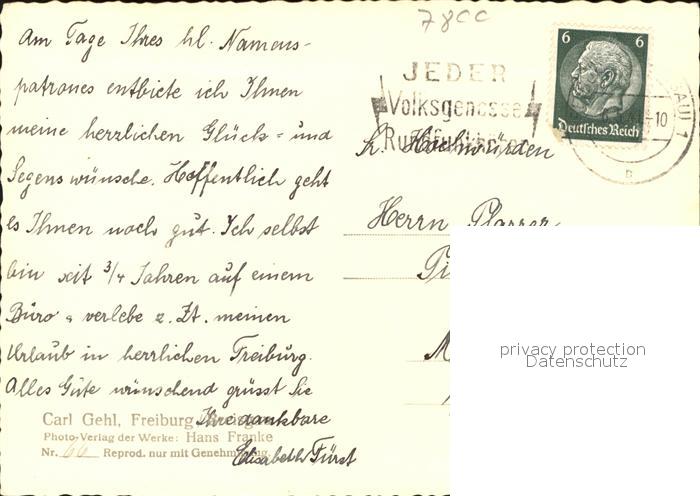 7800
Am Tage Ihres hl. Namens-
patrones entbiete ich Ihnen
meine herzlichen Glück- und
Segenswünsche. Hoffentlich geht
es Ihnen noch gut. Ich selbst
bin seit 3/4 Jahren auf einem
Büro u verlebe z. Zt. meinen
Urlaub in herrlichen Freiburg.
Alles Gute wünschend grüsst Sie
Ihre dankbare
Elisabeth Fürst
Carl Gehl, Freiburg
Photo-Verlag der Werke: Hans Franke
Nr. 60 Reprod. nur mit Genehmigung
JEDER
Volksgenosse
Rundfunkhörer
6 6
Deutsches Reich
-10
b
Sr. Hochwürden
Herrn Pfarrer
privacy protection
Datenschutz